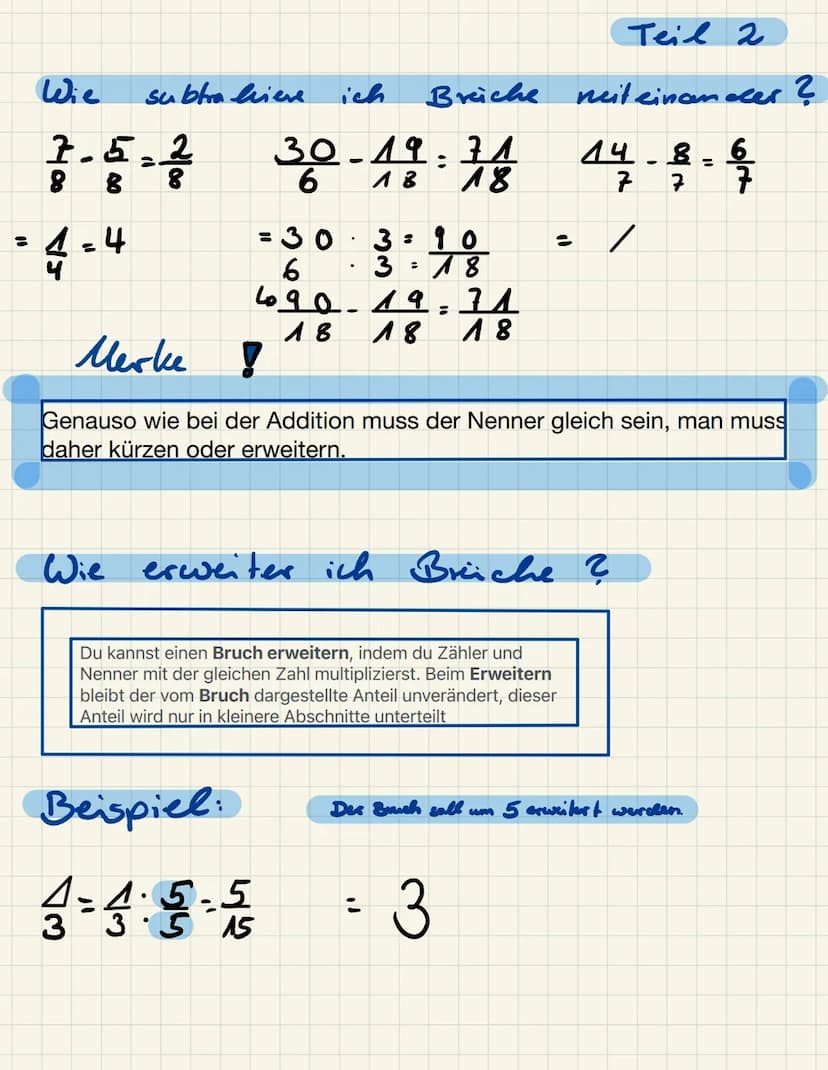 Teil 2
Wie subtrahiere ich Brüche miteinander?
7/8 - 5/8 = 2/8
= 1/4 = 4
30/6 - 19/18 = 71/18
= 30/6 · 3/3 = 90/18
↳ 90/18 - 19/18 = 71/18
14/7 - 8/7 = 6/7
= /
Merke !
Genauso wie bei der Addition muss der Nenner gleich sein, man muss
daher kürzen oder erweitern.
Wie erweiter ich Brüche ?
Du kannst einen Bruch erweitern, indem du Zähler und
Nenner mit der gleichen Zahl multiplizierst. Beim Erweitern
bleibt der vom Bruch dargestellte Anteil unverändert, dieser
Anteil wird nur in kleinere Abschnitte unterteilt
Beispiel:
Der Bruch soll um 5 erweitert werden.
1/3 = 1/3 · 5/5 = 5/15 = 3